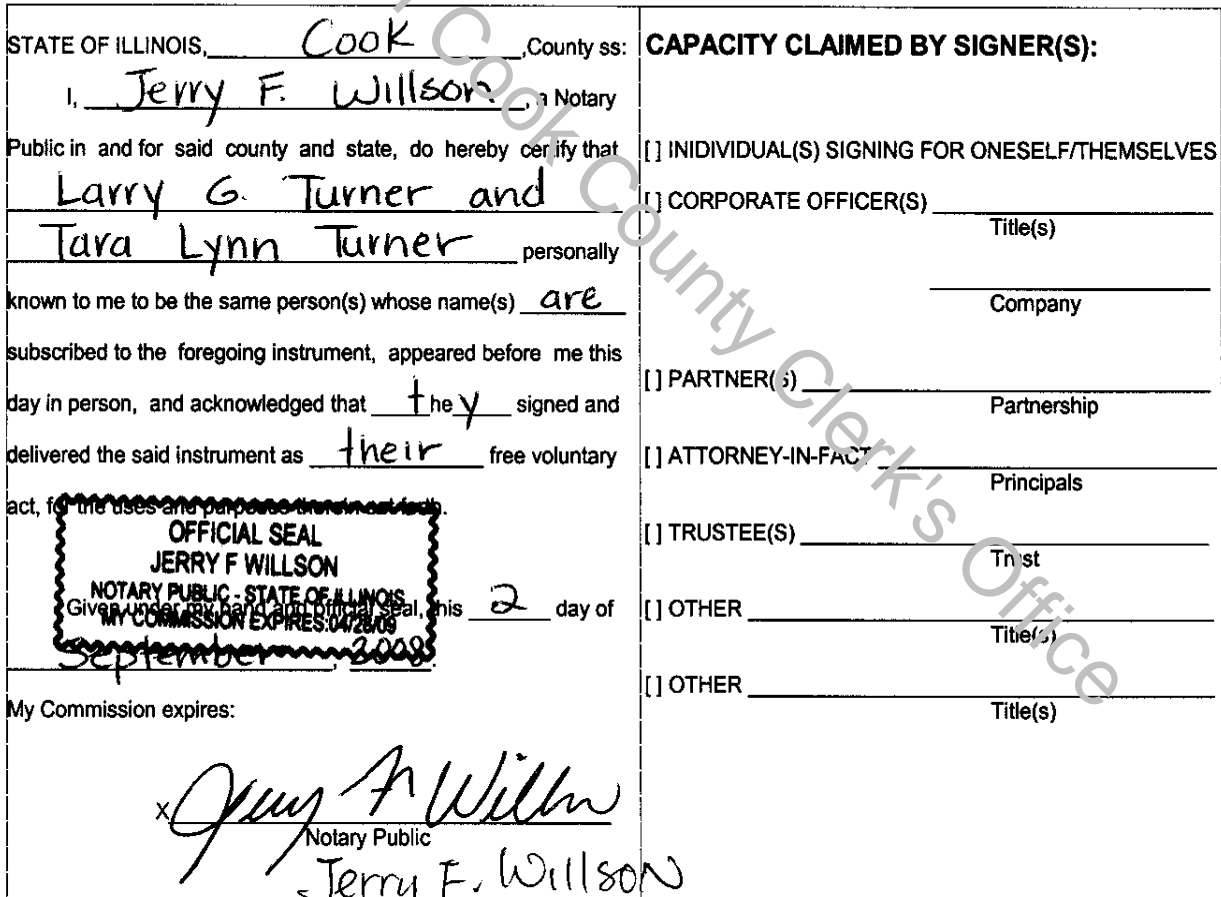 STATE OF ILLINOIS, Cook ,County ss:
I, Jerry F. Willson, a Notary
Public in and for said county and state, do hereby certify that
Larry G. Turner and
Tara Lynn Turner personally
known to me to be the same person(s) whose name(s) are
subscribed to the foregoing instrument, appeared before me this
day in person, and acknowledged that they signed and
delivered the said instrument as their free voluntary
act, for the uses and purposes therein set forth.
OFFICIAL SEAL
JERRY F WILLSON
NOTARY PUBLIC - STATE OF ILLINOIS
MY COMMISSION EXPIRES:04/28/09
Given under my hand and official seal, this 2 day of
September, 2008.
My Commission expires:
x Jerry F Willson
Notary Public
Jerry F. Willson
CAPACITY CLAIMED BY SIGNER(S):
[ ] INIDIVIDUAL(S) SIGNING FOR ONESELF/THEMSELVES
[ ] CORPORATE OFFICER(S)
Title(s)
Company
[ ] PARTNER(S)
Partnership
[ ] ATTORNEY-IN-FACT
Principals
[ ] TRUSTEE(S)
Trust
[ ] OTHER
Title(s)
[ ] OTHER
Title(s)
Cook County Clerk's Office